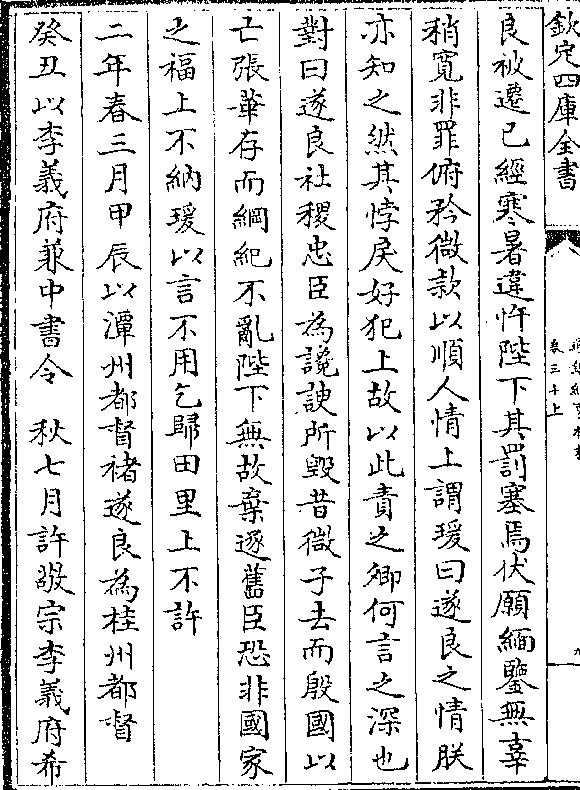 欽定四庫全書
卷三十上
九
良被遷已經寒暑違忤陛下其罰塞焉伏願緬鑒無辜
稍寛非罪俯矜微款以順人情上謂瑗曰遂良之情朕
亦知之然其悖戾好犯上故以此責之卿何言之深也
對曰遂良社稷忠臣為讒諛所毀昔微子去而殷國以
亡張華存而綱紀不亂陛下無故棄逐舊臣恐非國家
之福上不納瑗以言不用乞歸田里上不許
二年春三月甲辰以潭州都督禇遂良為桂州都督
癸丑以李義府兼中書令　秋七月許敬宗李義府希